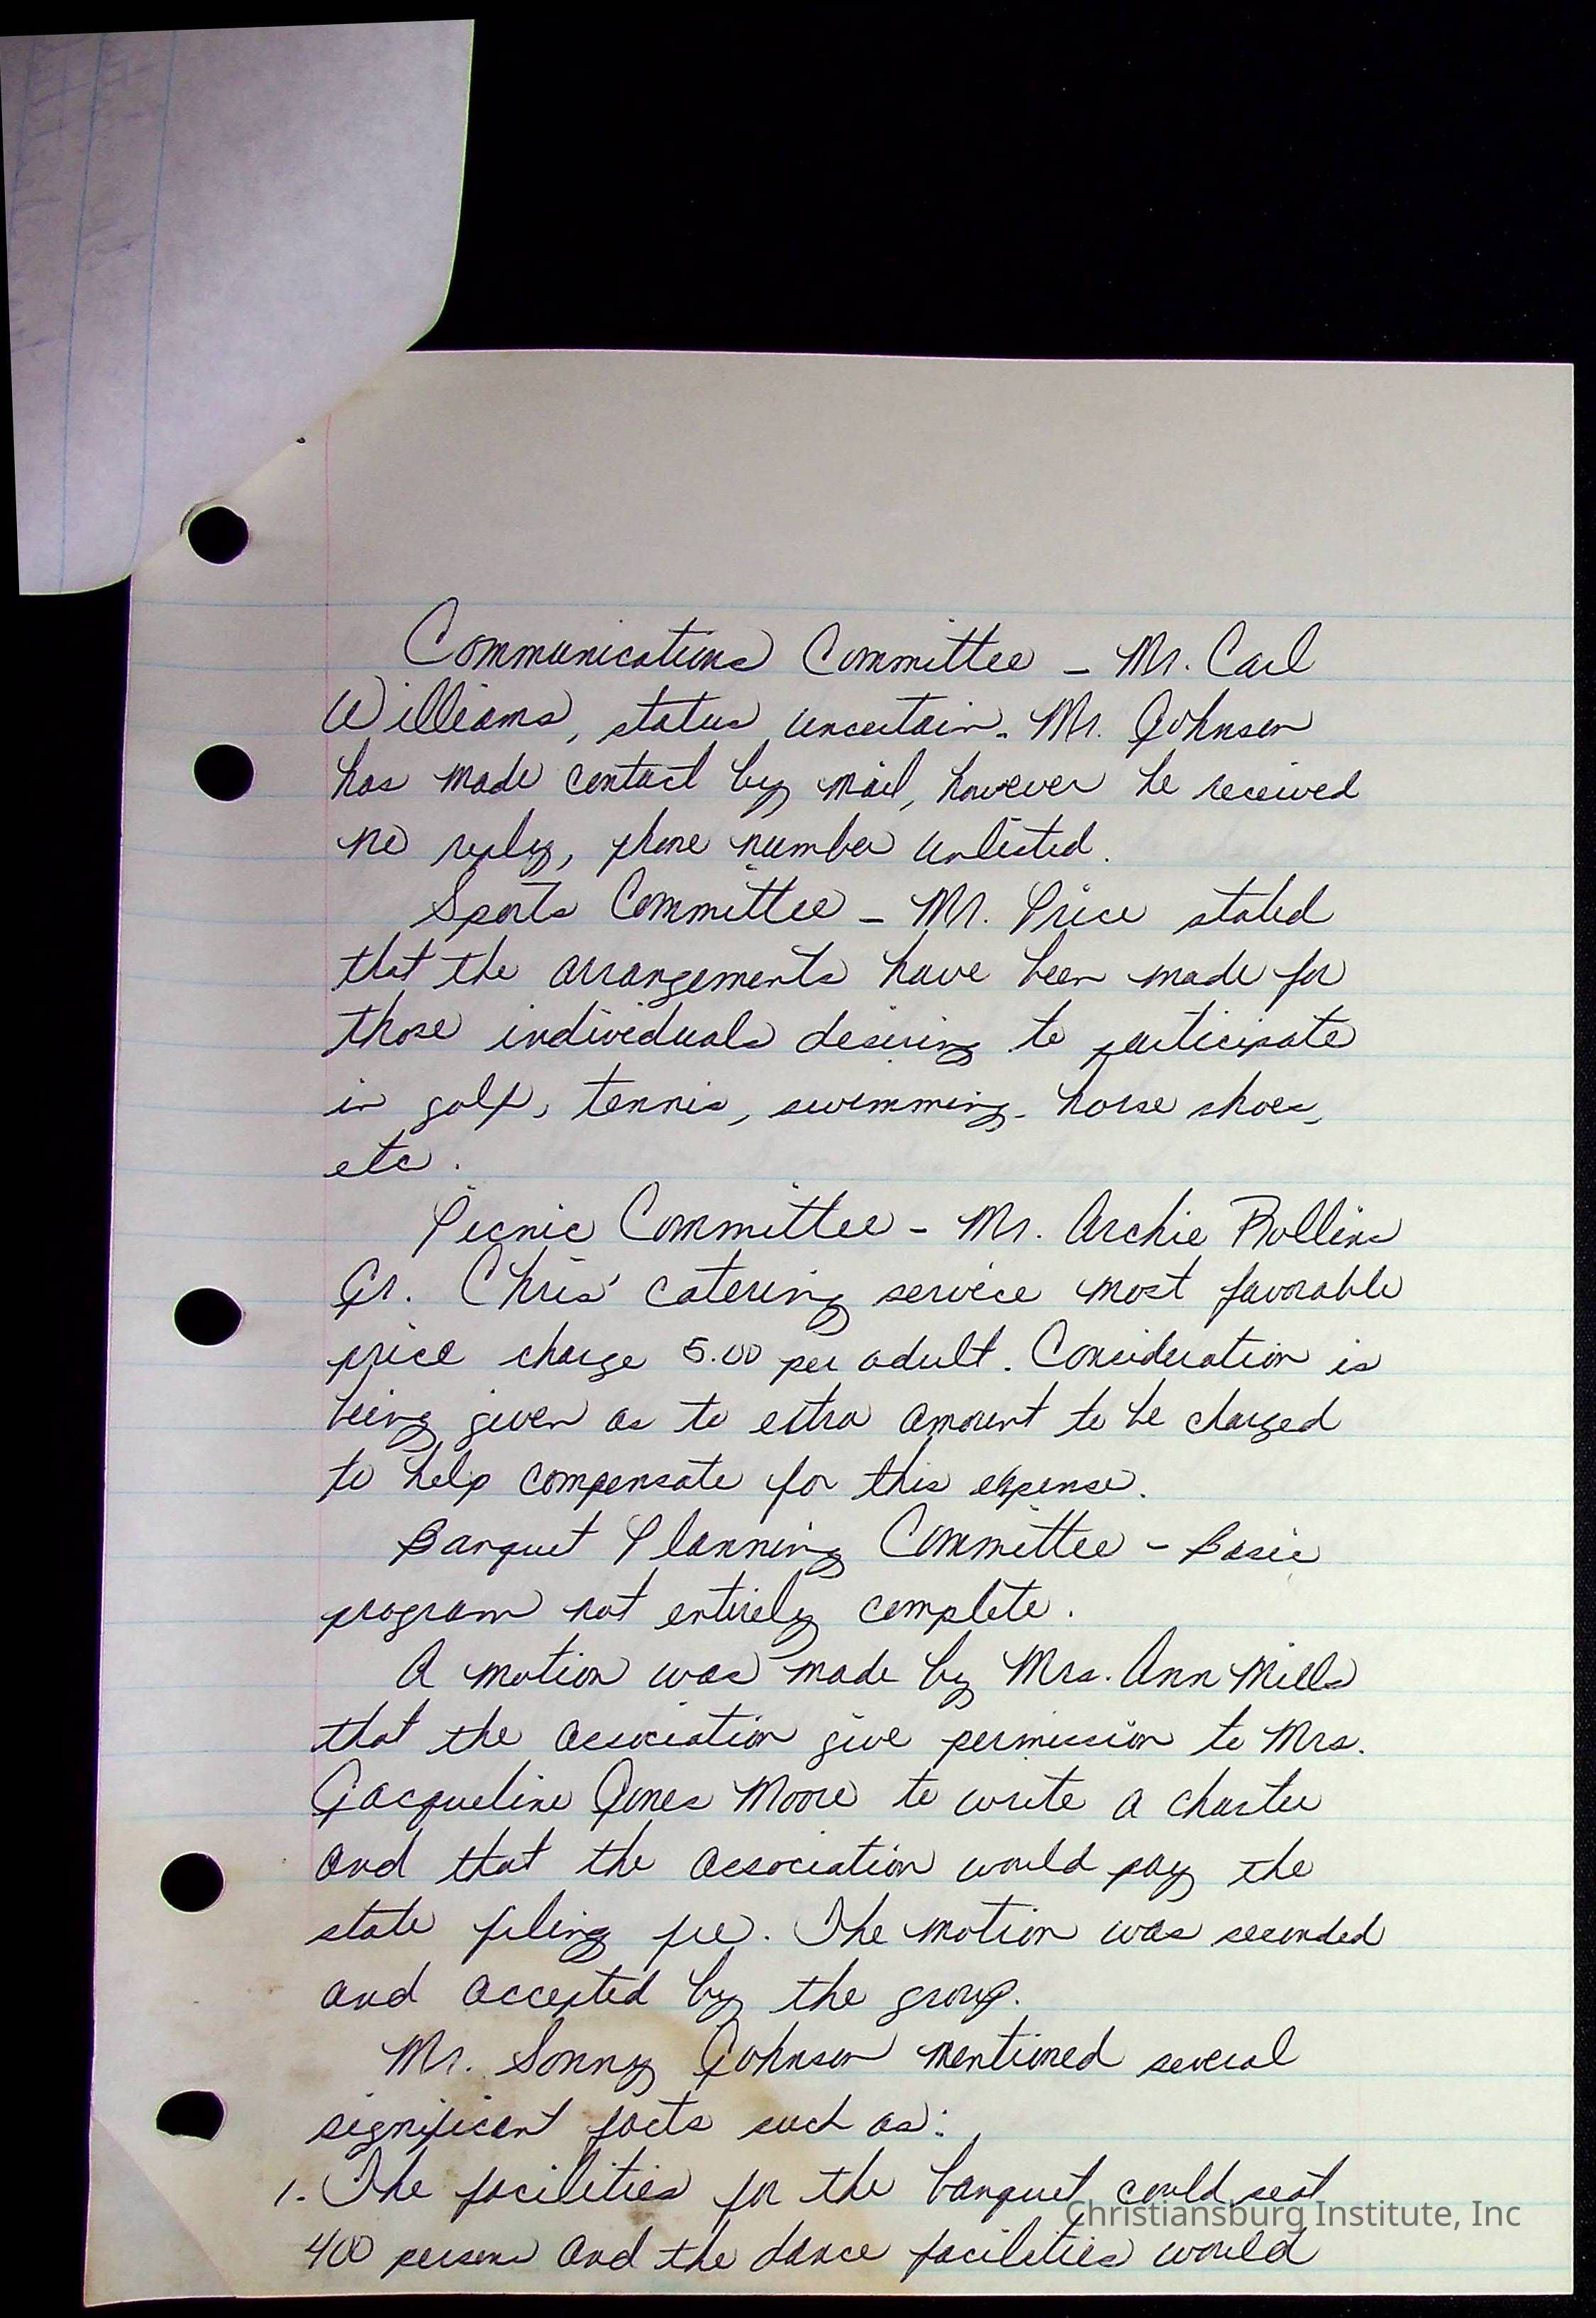 Communications Committee - Mr. Carl
Williams, status uncertain. Mr. Johnson
has made contact by mail, however he received
no reply, phone number unlisted.
Sports Committee - Mr. Price stated
that the arrangements have been made for
those individuals desiring to participate
in golf, tennis, swimming, horse shoes,
etc.
Picnic Committee - Mr. Archie Rollins
Jr. Chris' catering service most favorable
price charge 5.00 per adult. Consideration is
being given as to extra amount to be charged
to help compensate for this expense.
Banquet Planning Committee - Basic
program not entirely complete.
A motion was made by Mrs. Ann Mills
that the association give permission to Mrs.
Jacqueline Jones Moore to write a charter
and that the association would pay the
state filing fee. The motion was seconded
and accepted by the group.
Mr. Sonny Johnson mentioned several
significant facts such as:
1. The facilities for the banquet could seat
400 persons and the dance facilities would
Christiansburg Institute, Inc